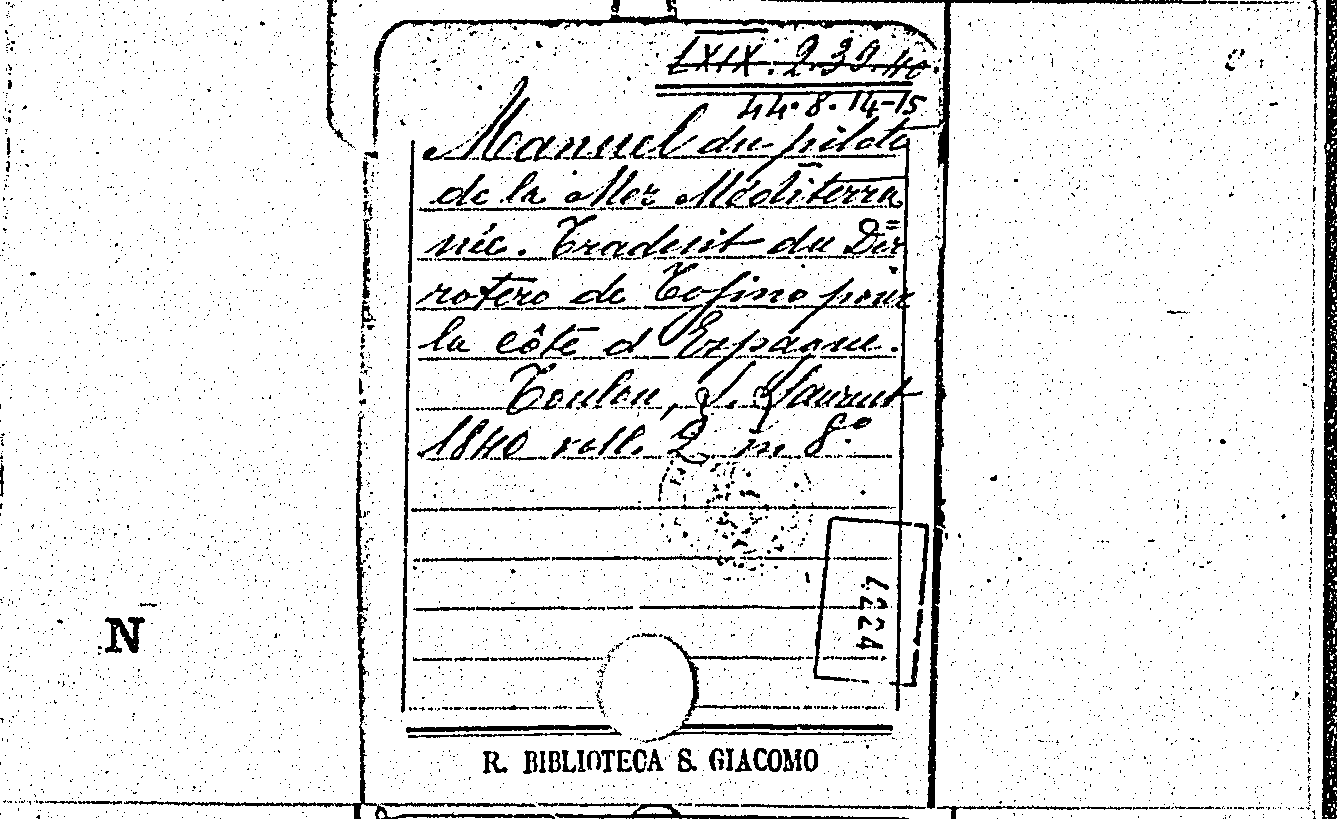 LXIX. 2.39.40.
44.8.14-15
Manuel du pilote
de la Mer Méditerra
née. Traduit du Der
rotero de Tofino pour
la côte d'Espagne.
Toulon, L. Laurent
1840 voll. 2 in 8.º
4224
N
R. BIBLIOTECA S. GIACOMO